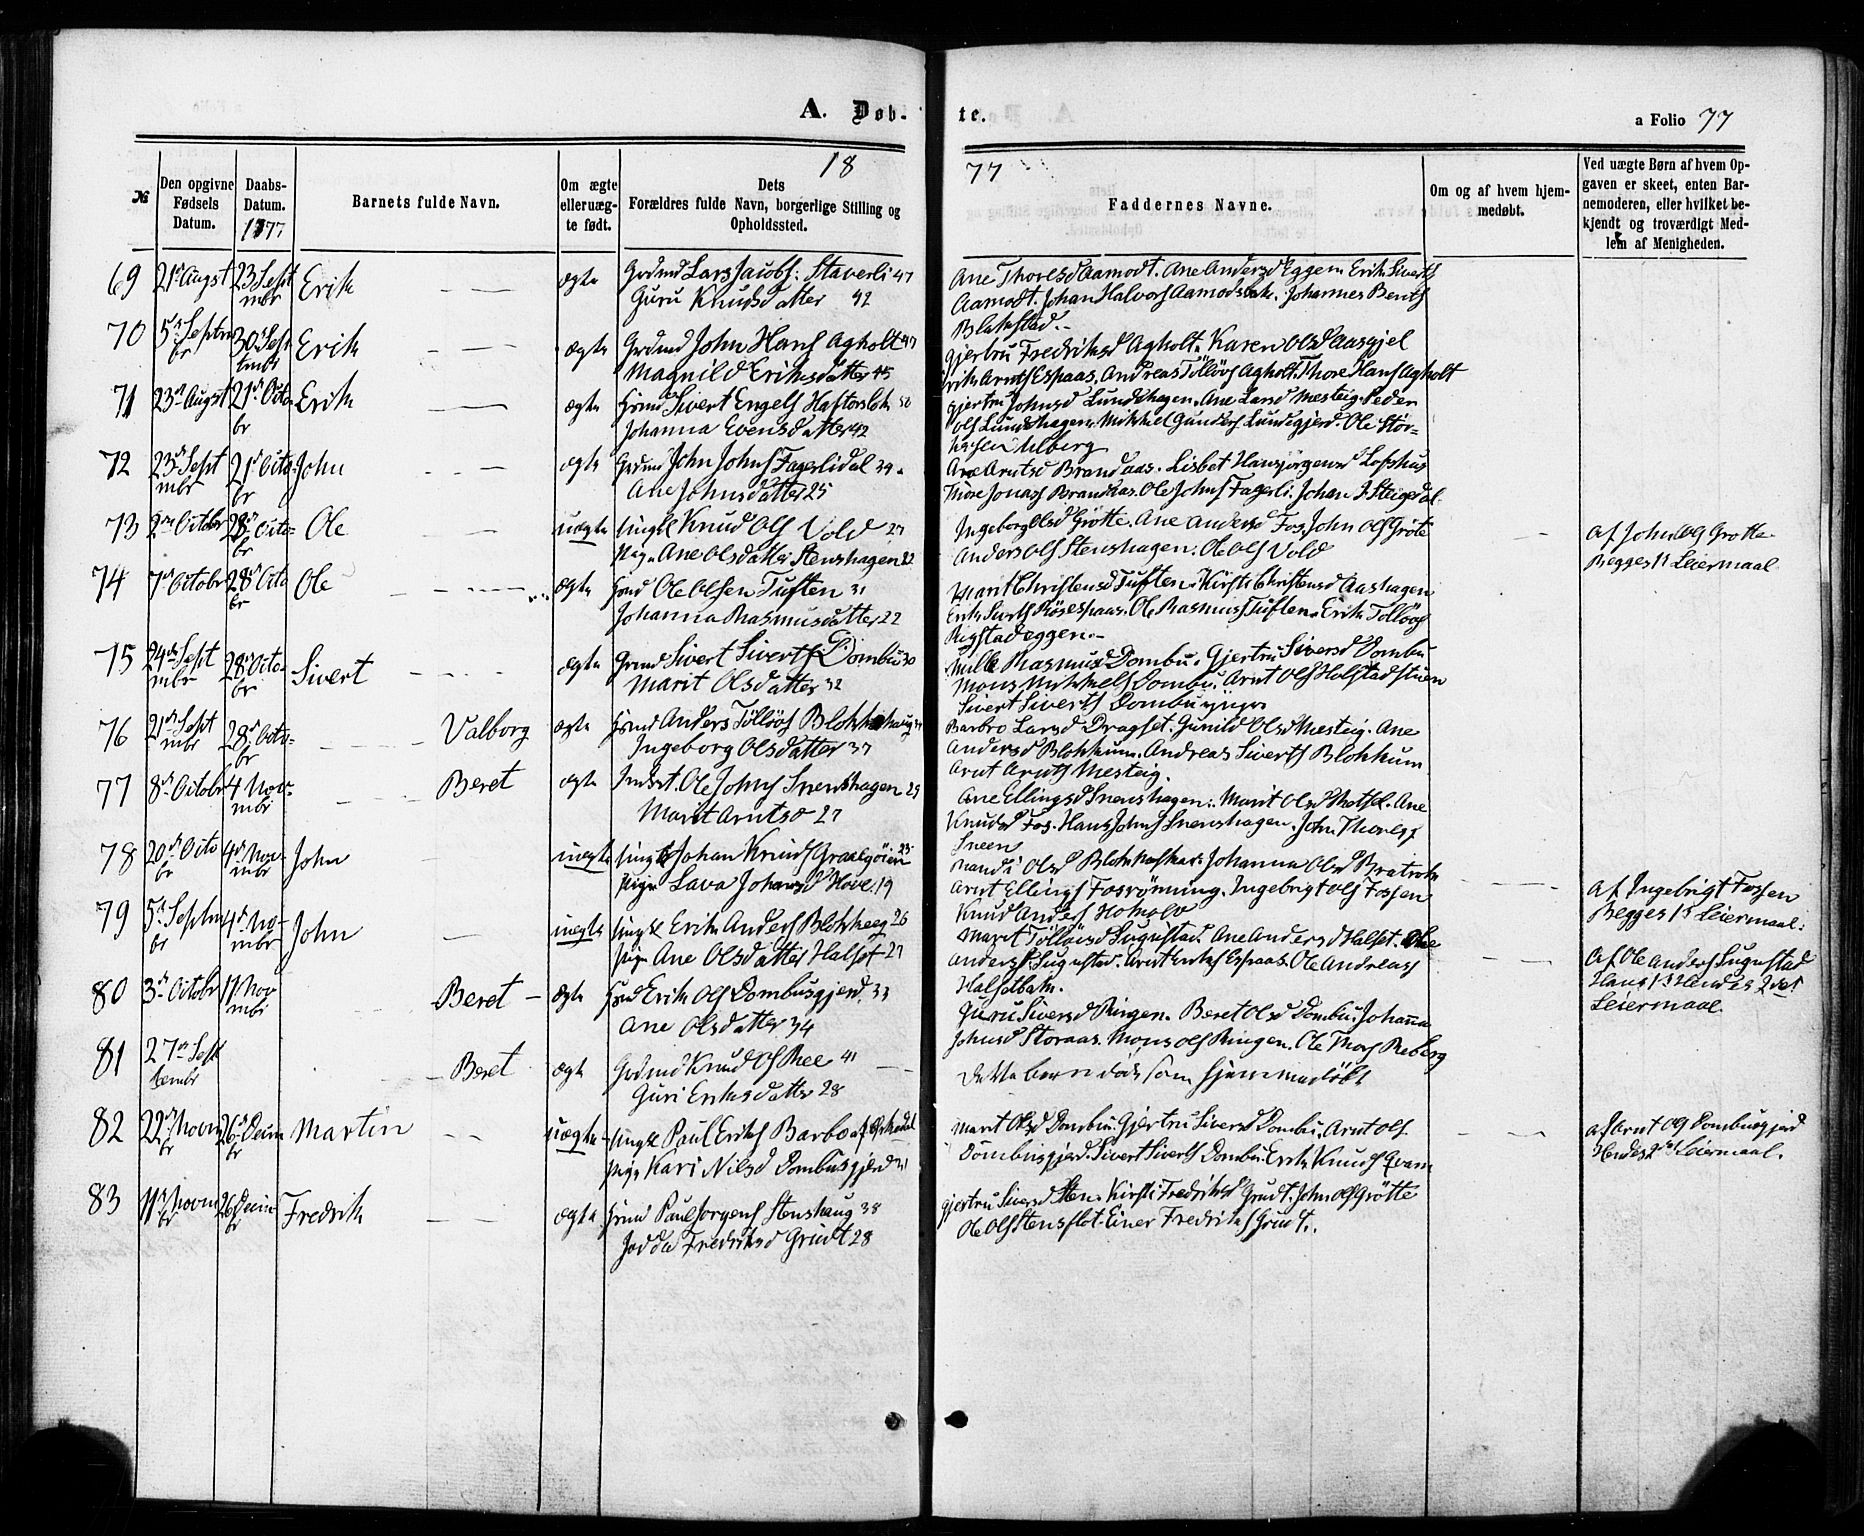 A. Døb-
te.
a Folio 77
18
77
№
Den opgivne Fødsels Datum.
Daabs-Datum. 1877
Barnets fulde Navn.
Om ægte eller uægte født.
Dets Forældres fulde Navn, borgerlige Stilling og Opholdssted.
Faddernes Navne.
Om og af hvem hjemmedøbt.
Ved uægte Børn af hvem Opgaven er skeet, enten Barnemoderen, eller hvilket bekjendt og troværdigt Medlem af Menigheden.
69 21de Augst 23 Septmbr Erik ægte Grdmd Lars Jacobs. Staverli 47
Guru Knudsdatter 42
Ane Thoresd Aamodt. Ane Andersd Eggen. Erik Siverts
Aamodt. Johan Halvors Aamodsbak. Johannes Bents
Blokstad.
70 5de Septmbr 30 Septembr Erik ægte Grdmd John Hans Agholt 47
Magnild Eriksdatter 45
Gjertru Fredriksd Agholt. Karen Olsd Aasgjel
Erik Arnts Espaas. Andreas Tølløvs Agholt. Thore Hans Agholt
71 23de Augst 21de Octobr Erik ægte Hsmd Sivert Engels
Johanna Evensdatter 42
Gjertru Johnsd Lundshagen. Ane Larsd Mesteig. Peder
Ols Lundshagen. Mikkel Gunders Lundsgjerd. Ole
Ulberg
72 23de Septmbr 21de Octobr John ægte Grdmd John Johns Fagerlidal
Ane Johnsdatter 25
Ane Arntsd Brandaas. Lisbet Hansjørgensd Lofshus
Thore Jonas Brandaas. Ole Johns Fagerli. Johan J. Steigedal
73 2den Octobr 28de Octobr Ole uægte Ungkl Knud Ols Vold 27
Pige Ane Olsdatter Stenshagen 22
Ingeborg Olsd Grötte. Ane Andersd Fos. John Ols Gröte
Anders Ols Stenshagen. Ole Ols Vold
af John Ols Grotte
Begges 1s Leiermaal
74 7de Octobr 28de Octobr Ole ægte Hsmd Ole Olsen Tuften 31
Johanna Rasmusdatter 22
Marit Christensd Tuften. Kirsti Christensd Aashagen
Erik Siverts Røsespaas. Ole Rasmus Tuften. Erik Tølløvs
Rigstadeggen.
75 24de Septmbr 28de Octobr Sivert ægte Grdmd Sivert Siverts Dombu 30
Marit Olsdatter 32
Mille Rasmusd Dombu. Gjertru Siversd Dombu
Mons Mikkels Dombu. Arnt Ols Holstadstuen
Sivert Siverts Dombu yngre
76 21de Septmbr 28de Octobr Valborg ægte Hsmd Anders Tølløvs Blokkhaug
Ingeborg Olsdatter 37
Barbro Larsd Dragset. Gunild Olsd Mesteig. Ane
Andersd Blokkum. Andreas Siverts Blokkum
Arnt Arnts Mesteig.
77 8de Octobr 4 Novmbr Beret ægte Indst. Ole Johns Snenshagen 29
Marit Arntsd 27
Ane Ellingsd Snenshagen. Marit Olsd Ane
Knudsd Fos. Hans Johns Snenshagen. John Thores
Sneen
78 20de Octobr 4de Novmbr John uægte Ungkl Johan Knuds 23
Pige Lava Johansd Hove 19
Olsd Johanna Olsd
Arnt Ellings Fosrönning. Ingebrigt Ols Fossen
Knud Anders
af Ingebrigt Fossen
Begges 1s Leiermaal.
79 5te Septmbr 4de Novmbr John uægte Ungkl Erik Anders Blokkeeg 26
Pige Ane Olsdatter Halset 27
Marit Tølløvsd Sugustad. Ane Andersd Halset. Ole
Anders Sugustad. Arnt Eriks Espaas. Ole Andreas
Halsetbak.
af Ole Anders Sugustad
Hans 1s Hendes 2det
Leiermaal.
80 3de Octobr 11 Novmbr Beret ægte Hsmd Erik Ols Dombusgjerd. 33
Ane Olsdatter 34
Guru Siversd Ringen. Beret Olsd Dombu. Johanna
Johnsd Storaas. Mons Ols Ringen. Ole Thors Reberg
81 27de September Beret ægte Grdmd Knud Ols Ree 41
Guri Eriksdatter 28
Dette barn døde som hjemmedöbt
82 22de Novmbr 26de Decmbr Martin uægte Ungkl Paul Eriks Barbo af Opdal
Pige Kari Nilsd Dombusgjerd 31
Marit Olsd Dombu. Gjertru Siversd Dombu. Arnt Ols
Dombusgjerd. Sivert Siverts Dombu. Erik Knuds Qvam
af Arnt Ols Dombusgjerd
Hendes 2det Leiermaal.
83 11te Novmbr 26 Decmbr Fredrik ægte Hsmd Paul Jorgens Stenshaug 38
Jodda Fredriksd Grudt 28
Gjertru Siversd Sten. Kirsti Fredriksd Grudt. John Ols Grötte
Ole Ols Stensflot. Einer Fredriks Grudt.